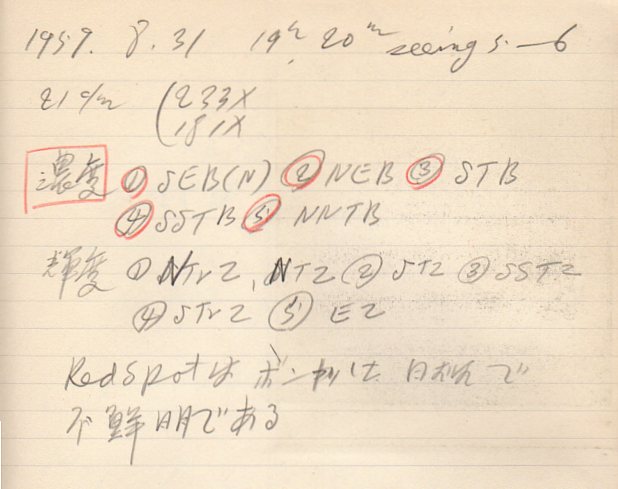 1959. 8. 31 19h 20m seeing 5-6
21c/m (233X
181X
濃度 ① SEB(N) ② NEB ③ STB
④ SSTB ⑤ NNTB
輝度 ① NTrZ, NTZ ② STZ ③ SSTZ
④ STrZ ⑤ EZ
RedSpotは で
不鮮明である